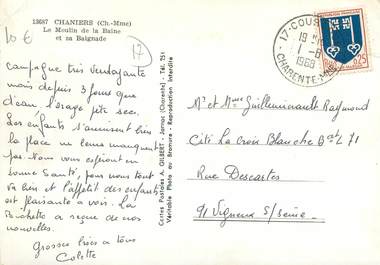 13687 CHANIERS (Ch.-Mme)
Le Moulin de la Baine
et sa Baignade
10 €
17
Campagne très verdoyante
mais depuis 3 jours que
d'eau, l'orage pète sec.
Les enfants s'amusent bien
la place ne leurs manquent
pas. Nous vous espérons en
bonne Santé, pour nous tout
va bien et l'appétit des enfants
est plaisante à voir. La
a reçue de nos
nouvelles.
Grosses bises à tous
Colette
Cartes Postales A. GILBERT - Jarnac (Charente) - Tél. 151
Véritable Photo au Bromure - Reproduction Interdite
17-COUS
19
1-8
1968
CHARENTE-MME
0,25
Mr et Mme Guilleminault Raymond
Cité La Croix Blanche Bat L 71
Rue Descartes
91 Vigneux s/seine.